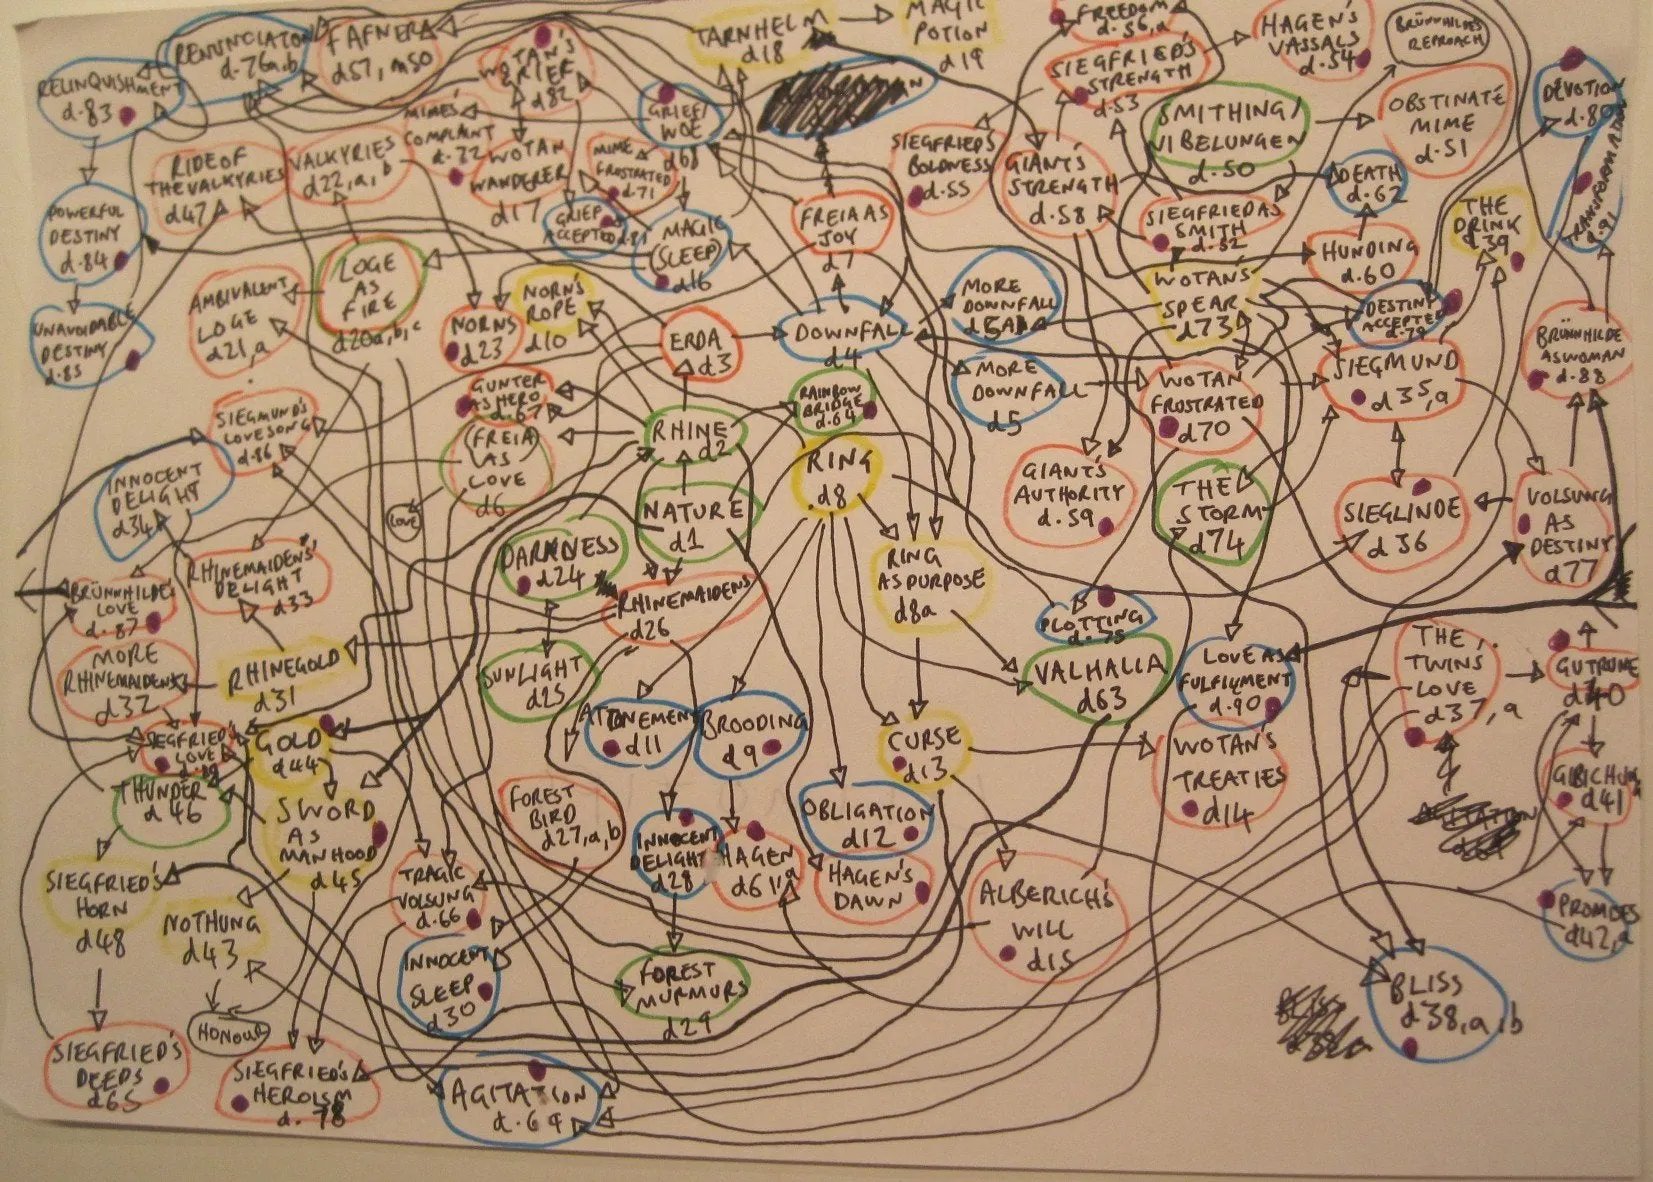 RELINQUISHMENT
d.83
d.76a,b
FAFNER
d57, a50
WOTAN'S
GRIEF
d82
TARNHELM
d18
MAGIC
POTION
d19
FREEDOM
d.56,a
SIEGFRIED'S
STRENGTH
d.53
HAGEN'S
VASSALS
d.54
BRÜNNHILDE'S
REPROACH
DEVOTION
d.80
GRIEF/
WOE
d68
MIME'S
COMPLAINT
d.72
SMITHING/
NIBELUNGEN
d.50
OBSTINATE
MIME
d.51
RIDE OF
THE VALKYRIES
d47
VALKYRIES
d22,a,b
WOTAN
WANDERER
d17
MIME
FRUSTRATED
d.71
SIEGFRIED'S
BOLDNESS
d.55
GIANT'S
STRENGTH
d.58
DEATH
d.62
POWERFUL
DESTINY
d.84
GRIEF
ACCEPTED d.81
MAGIC
(SLEEP)
d16
FREIA AS
JOY
d7
SIEGFRIED AS
SMITH
d.52
HUNDING
d.60
THE
DRINK
d39
d.91
UNAVOIDABLE
DESTINY
d.85
AMBIVALENT
LOGE
d21,a
LOGE
AS
FIRE
d20a,b,c
NORNS
d23
NORN'S
ROPE
d10
ERDA
d3
DOWNFALL
d4
MORE
DOWNFALL
MORE
DOWNFALL
d5
WOTAN'S
SPEAR
d73
DESTINY
ACCEPTED
d.79
BRÜNNHILDE
AS WOMAN
d.88
SIEGMUND'S
LOVE SONG
d.86
GUNTER
AS HERO
d.67
RAINBOW
BRIDGE
d.64
WOTAN
FROSTRATED
d70
SIEGMUND
d35,a
INNOCENT
DELIGHT
d34
(FREIA)
AS
LOVE
d6
LOVE
RHINE
d2
NATURE
d1
RING
d8
GIANT'S
AUTHORITY
d.59
THE
STORM
d74
SIEGLINDE
d36
VOLSUNG
AS
DESTINY
d77
BRÜNNHILDE'S
LOVE
d.87
RHINEMAIDENS'
DELIGHT
d33
DARKNESS
d24
RHINEMAIDENS
d26
RING
AS PURPOSE
d8a
PLOTTING
d.75
MORE
RHINEMAIDENS
d32
RHINEGOLD
d31
SUNLIGHT
d25
VALHALLA
d63
LOVE AS
FULFILMENT
d.90
THE
TWINS
LOVE
d37,a
GUTRUNE
d40
SIEGFRIED'S
LOVE
GOLD
d44
ATTONEMENT
d11
BROODING
d9
CURSE
d13
WOTAN'S
TREATIES
d14
d41
THUNDER
d46
SWORD
AS
MANHOOD
d45
FOREST
BIRD
d27,a,b
INNOCENT
DELIGHT
d28
HAGEN
d61,a
OBLIGATION
d12
HAGEN'S
DAWN
ALBERICH'S
WILL
d15
SIEGFRIED'S
HORN
d48
NOTHUNG
d43
TRAGIC
VOLSUNG
d.66
INNOCENT
SLEEP
d30
FOREST
MURMURS
d29
PROMISES
d42,a
BLISS
d38,a,b
SIEGFRIED'S
DEEDS
d65
HONOUR
SIEGFRIED'S
HEROISM
d.78
AGITATION
d.69